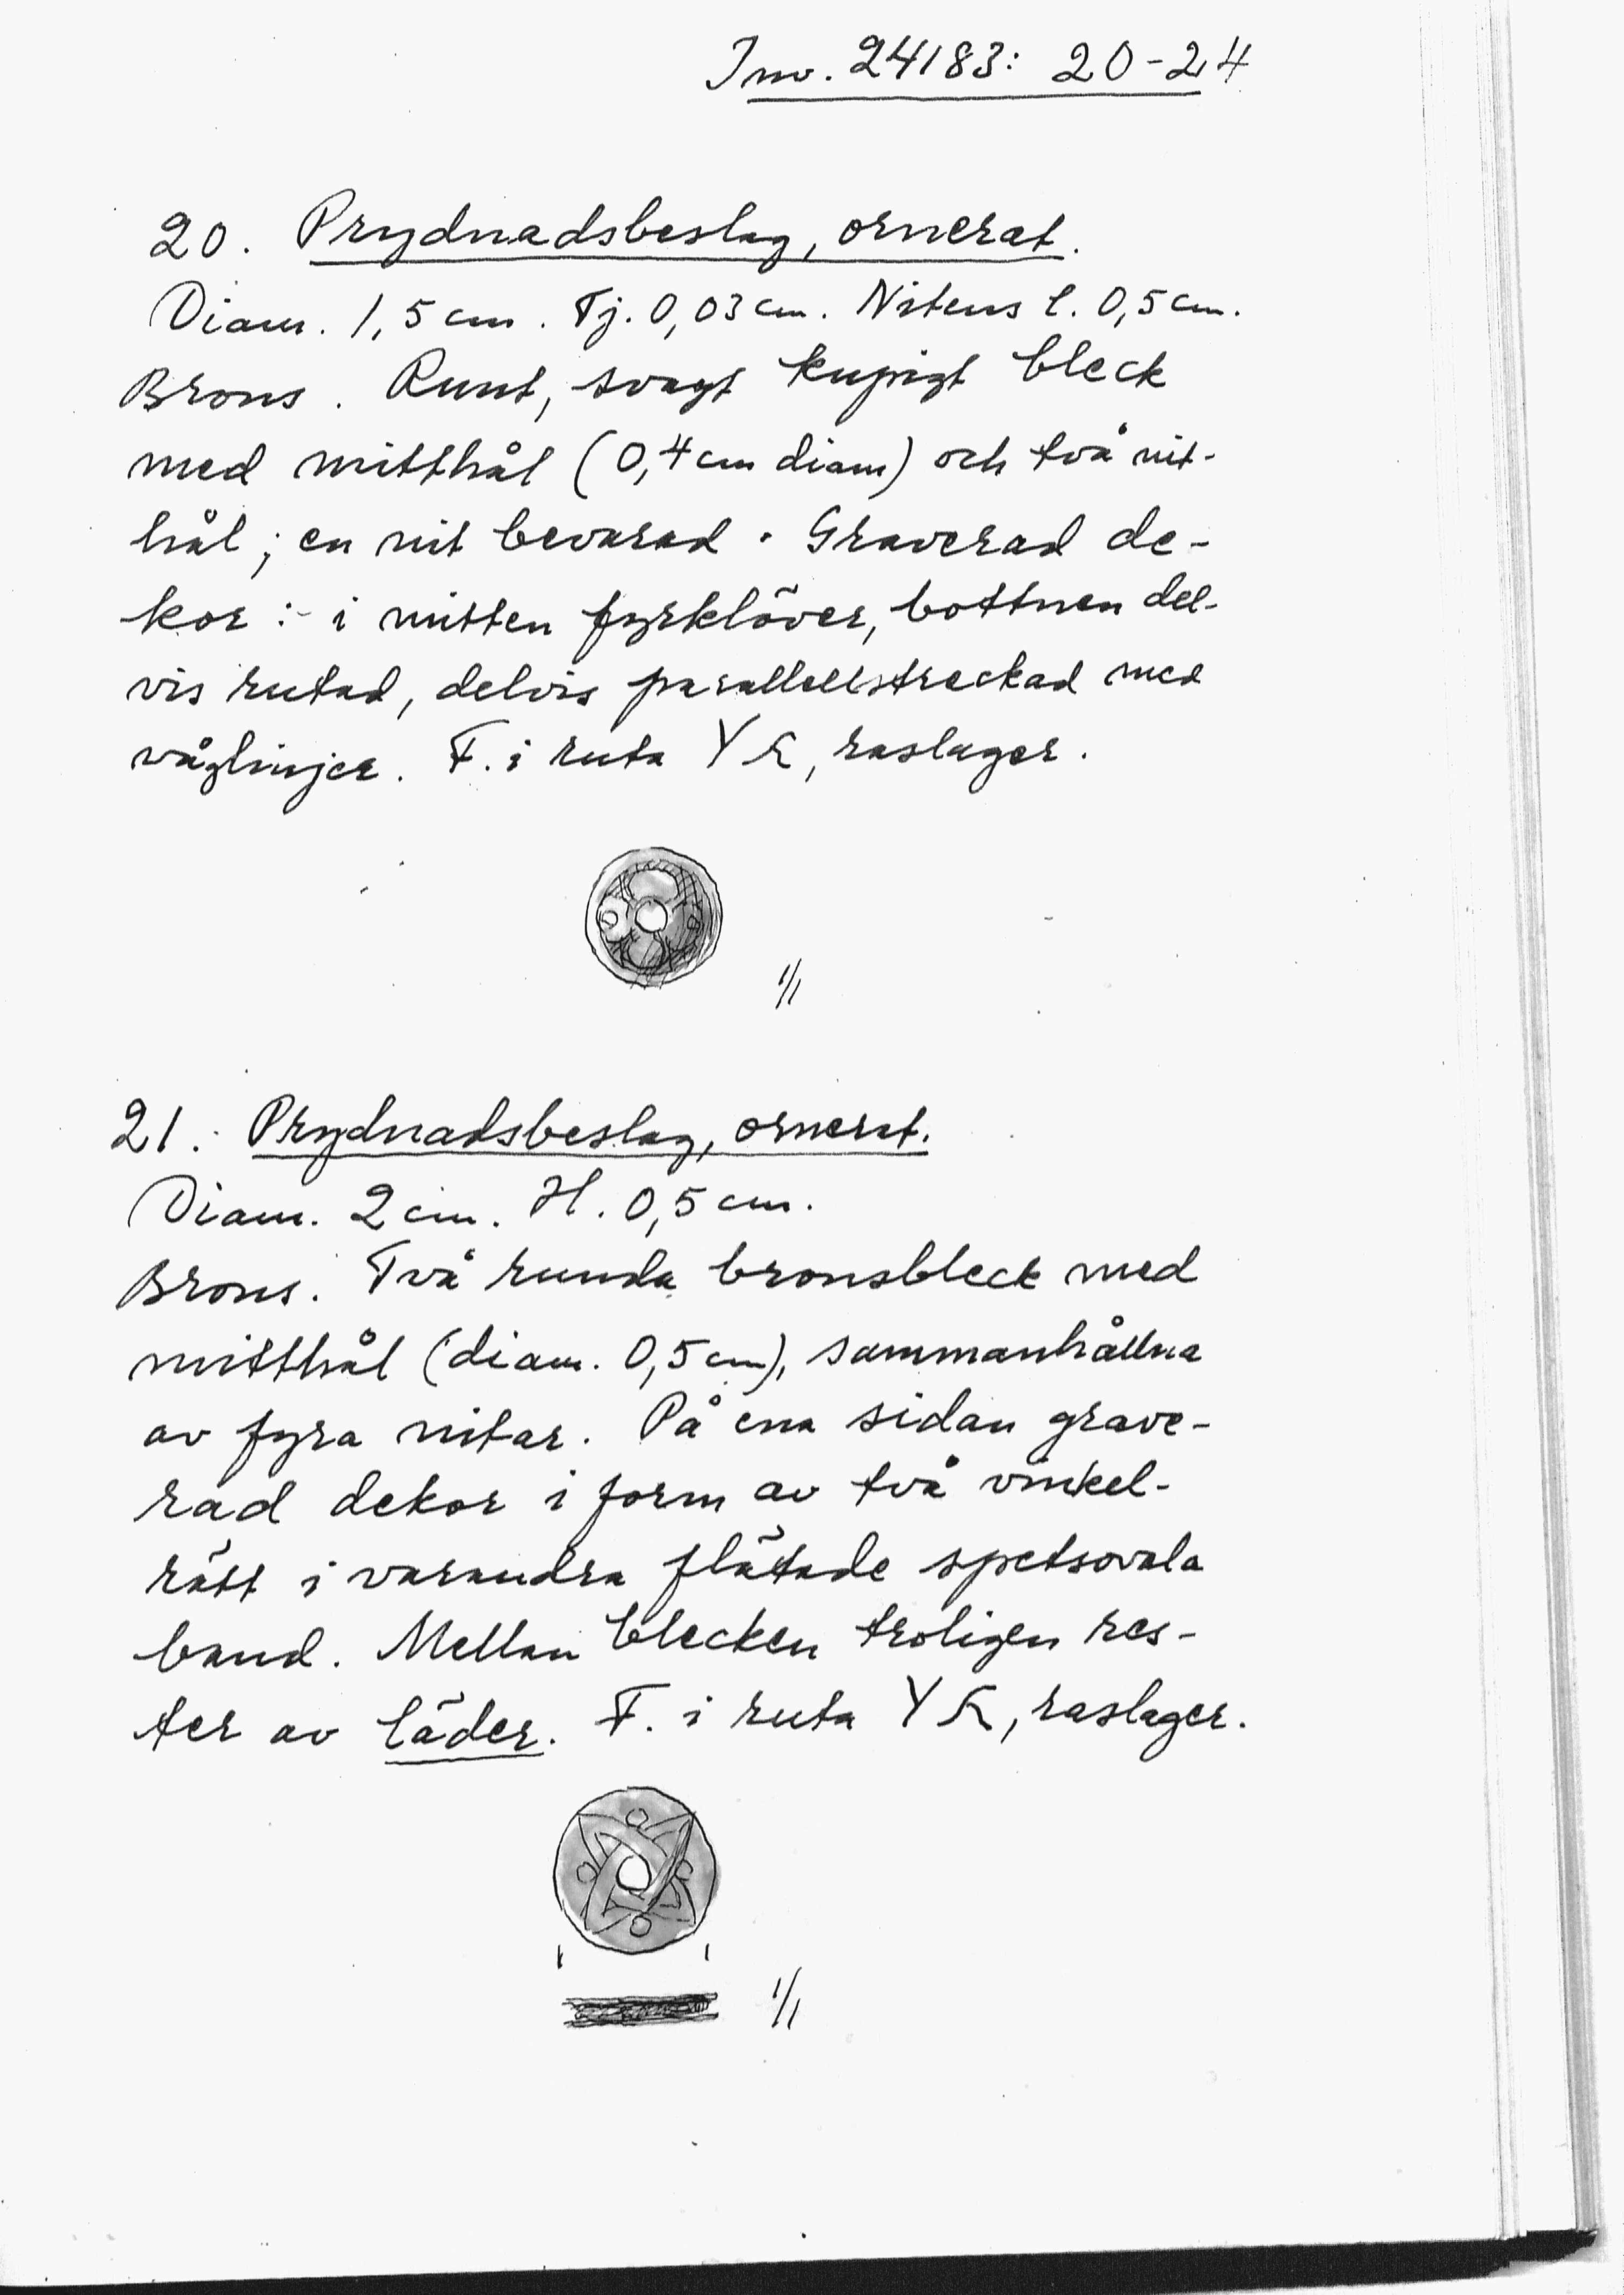 Inv. 24183: 20-24
20. Prydnadsbeslag, ornerat.
Diam. 1,5 cm. Tj. 0,03 cm. Nitens l. 0,5 cm.
Brons. Runt, svagt kupigt bleck
med mitthål (0,4 cm diam) och två nit-
hål; en nit bevarad. Graverad de-
kor: i mitten fyrklöver, bottnen del-
vis rutad, delvis parallellstreckad med
våglinjer. F. i ruta YK, raslager.
1/1
21. Prydnadsbeslag, ornerat.
Diam. 2 cm. H. 0,5 cm.
Brons. Två runda bronsbleck med
mitthål (diam. 0,5 cm), sammanhållna
av fyra nitar. På ena sidan grave-
rad dekor i form av två vinkel-
rätt i varandra flätade spetsovala
band. Mellan blecken troligen res-
ter av läder. F. i ruta YK, raslager.
1/1